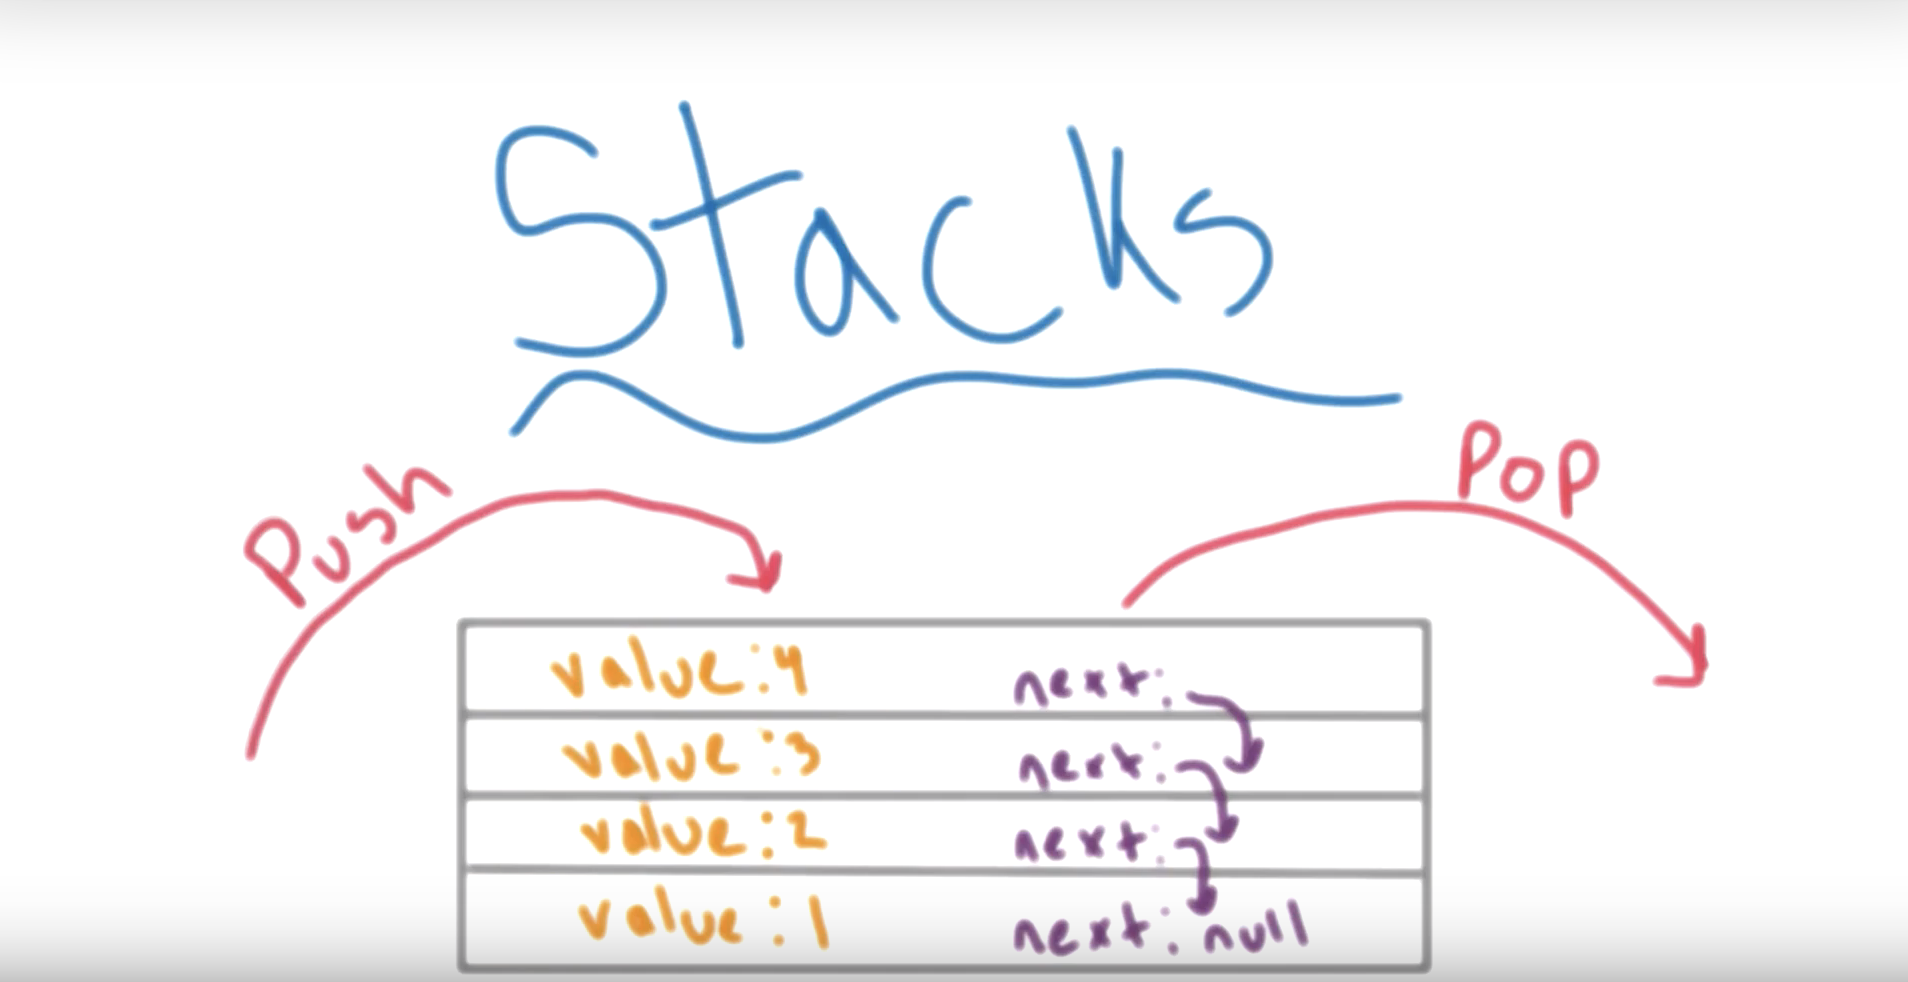 Stacks
Push
Pop
value:4 next:
value:3 next:
value:2 next:
value:1 next:null